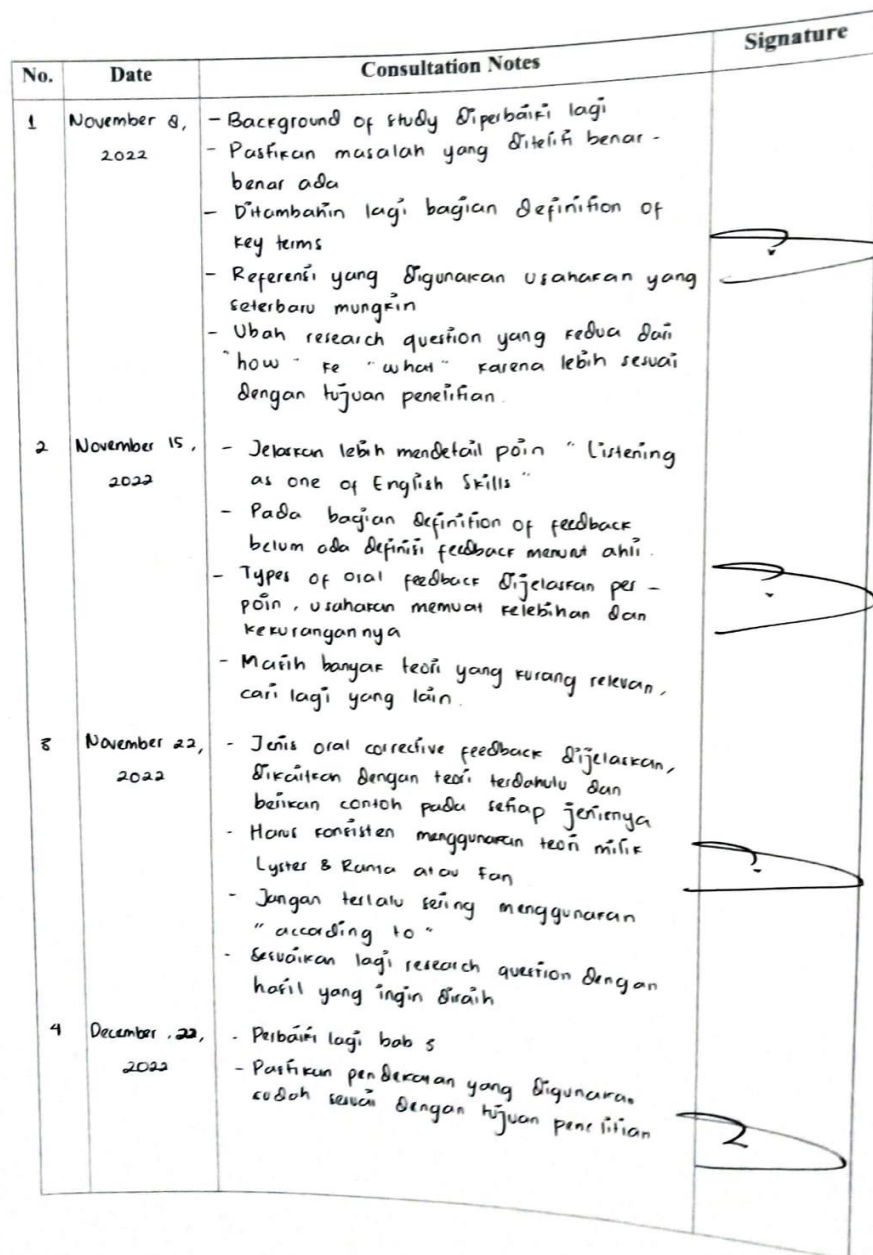 No. Date Consultation Notes Signature
1 November 8, 2022 - Background of study diperbaiki lagi
- Pastikan masalah yang diteliti benar -
benar ada
- Ditambahin lagi bagian definition of
key terms
- Referensi yang digunakan usahakan yang
seterbaru mungkin
- Ubah research question yang kedua dari
"how" ke "what" karena lebih sesuai
dengan tujuan penelitian.
2 November 15, 2022 - Jelaskan lebih mendetail poin "Listening
as one of English Skills"
- Pada bagian definition of feedback
belum ada definisi feedback menurut ahli.
- Types of oral feedback dijelaskan per -
poin, usahakan memuat kelebihan dan
kekurangannya
- Masih banyak teori yang kurang relevan,
cari lagi yang lain.
3 November 22, 2022 - Jenis oral corrective feedback dijelaskan,
dikaitkan dengan teori terdahulu dan
berikan contoh pada setiap jenisnya
- Harus konsisten menggunakan teori milik
Lyster & Ranta atau Fan
- Jangan terlalu sering menggunakan
"according to"
- Sesuaikan lagi research question dengan
hasil yang ingin diraih
4 December, 22, 2022 - Perbaiki lagi bab
- Pastikan pendekatan yang digunakan
sudah sesuai dengan tujuan penelitian